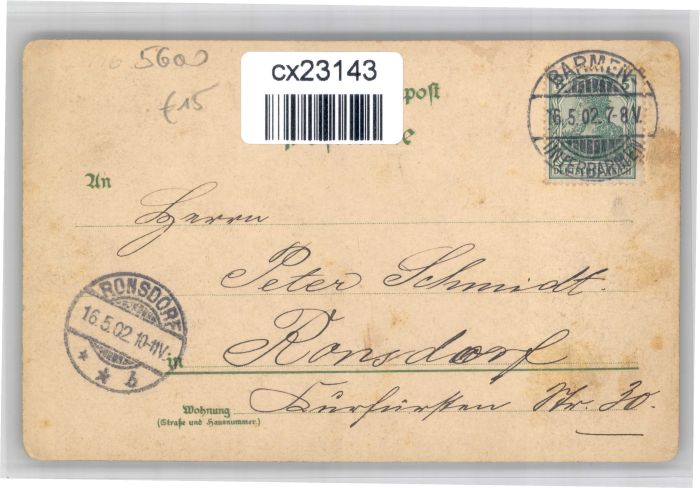 5600
£15
cx23143
post
An
Herrn
Peter Schmidt.
in Ronsdorf
Wohnung Kurfürsten Str. 30.
(Straße und Hausnummer.)
BARMEN
16.5.02.7-8V.
UNTERBARMEN
RONSDORF
16.5.02.10-11V.
* * b